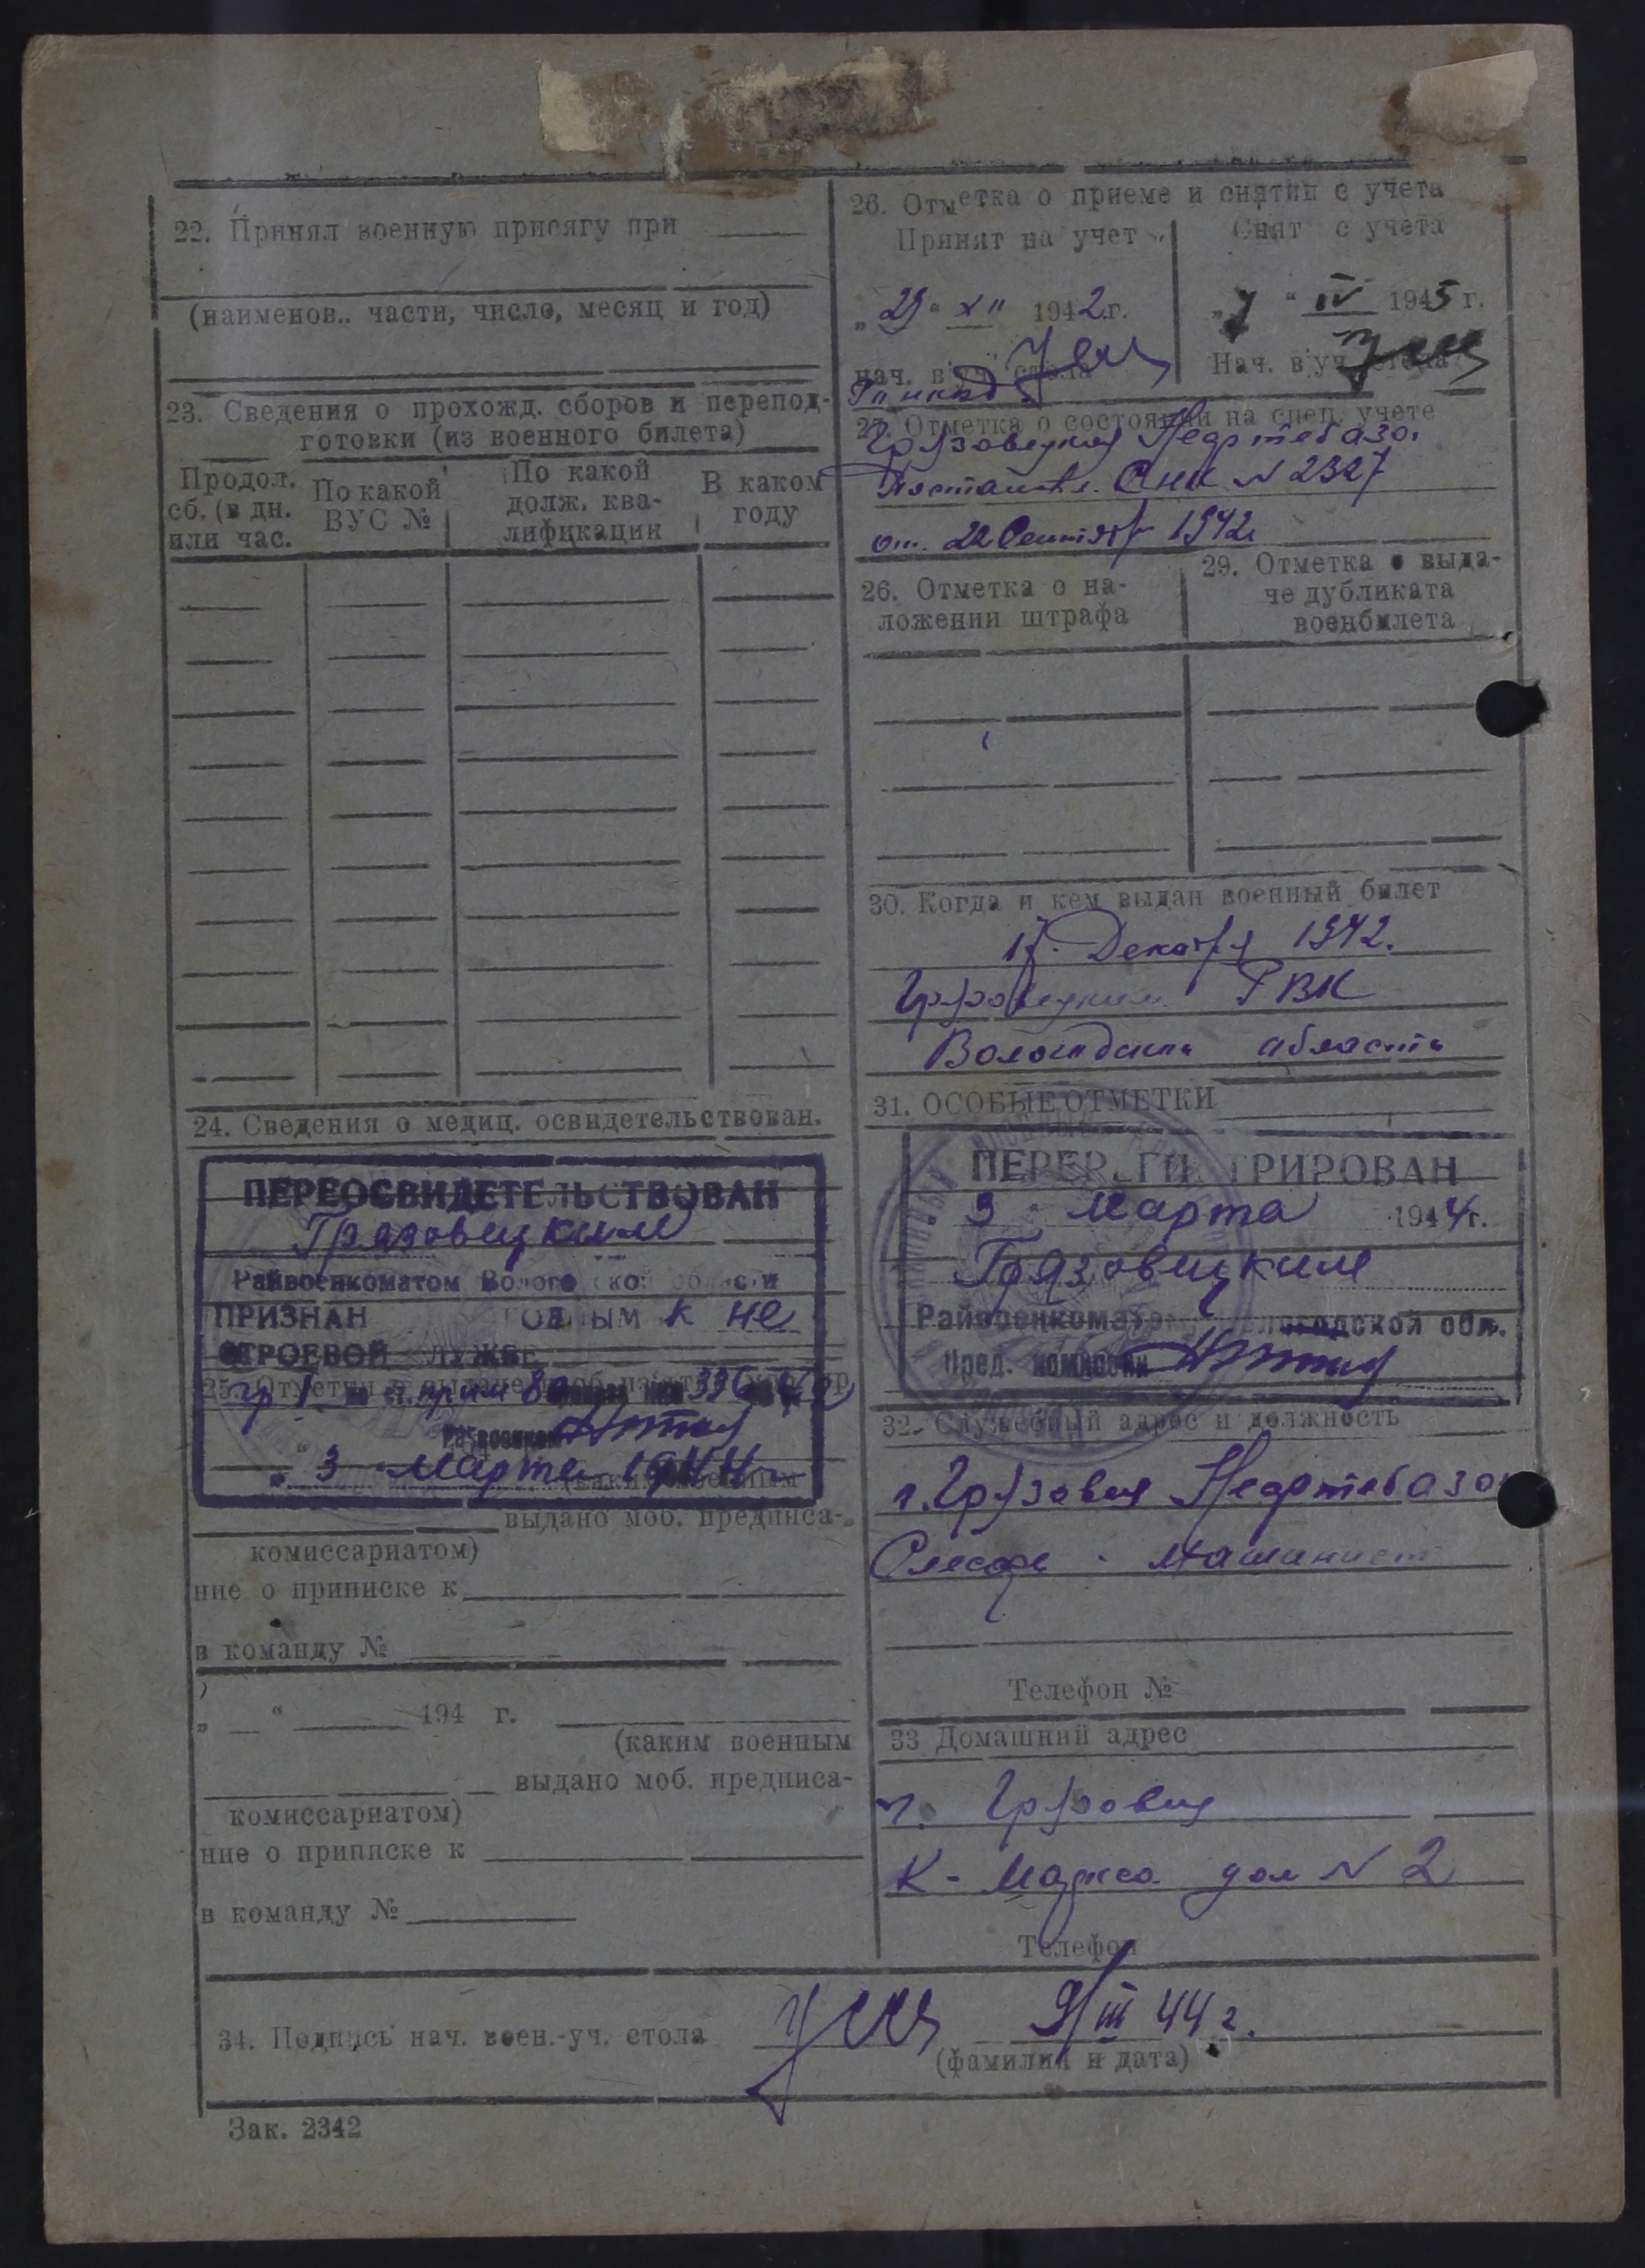 22. Принял военную присягу при
(наименов.. части, число, месяц и год)
23. Сведения о прохожд. сборов и перепод-
готовки (из военного билета)
Продол. сб. (в дн. или час.
По какой ВУС №
По какой долж. ква-лификации
В каком году
24. Сведения о медиц. освидетельствован.
ПЕРЕОСВИДЕТЕЛЬСТВОВАН
Грязовецким
Райвоенкоматом Вологодской области
ПРИЗНАН ГОДНЫМ К не
СТРОЕВОЙ СЛУЖБЕ
25. Отметки о выдаче моб.
336
Райвоенком
„ 3 " Марта 1944 г.
выдано моб. предписа-
комиссариатом)
ние о приписке к
в команду №
„ “ 194 г.
(каким военным
выдано моб. предписа-
комиссариатом)
ние о приписке к
в команду №
26. Отметка о приеме и снятии с учета
Принят на учет
Снят с учета
„ 29 “ XII 1942.г.
„ 7 “ IV 1945 г.
нач. в уч. стола
Нач. в уч. стола
27. Отметка о состоянии на спец. учете
Нефтебаза.
СНК N 2327
от. 22 Сентябр 1942
26. Отметка о на-
ложении штрафа
29. Отметка о выда-
че дубликата
военбилета
30. Когда и кем выдан военный билет
17. Декабря 1942.
Грязовецким РВК
области
31. ОСОБЫЕ ОТМЕТКИ
ПЕРЕРЕГИСТРИРОВАН
3 " Марта 1944г.
Грязовецким
Райвоенкоматом Вологодской обл.
Пред. комиссии
32. Служебный адрес и должность
г. Грязовец Нефтебаза
Слесарь - машинист
Телефон №
33 Домашний адрес
г. Грязовец
К-Маркса дом N 2
Телефон
34. Подпись нач. воен.-уч. стола
9/III 44 г.
(фамилия и дата)
Зак. 2342